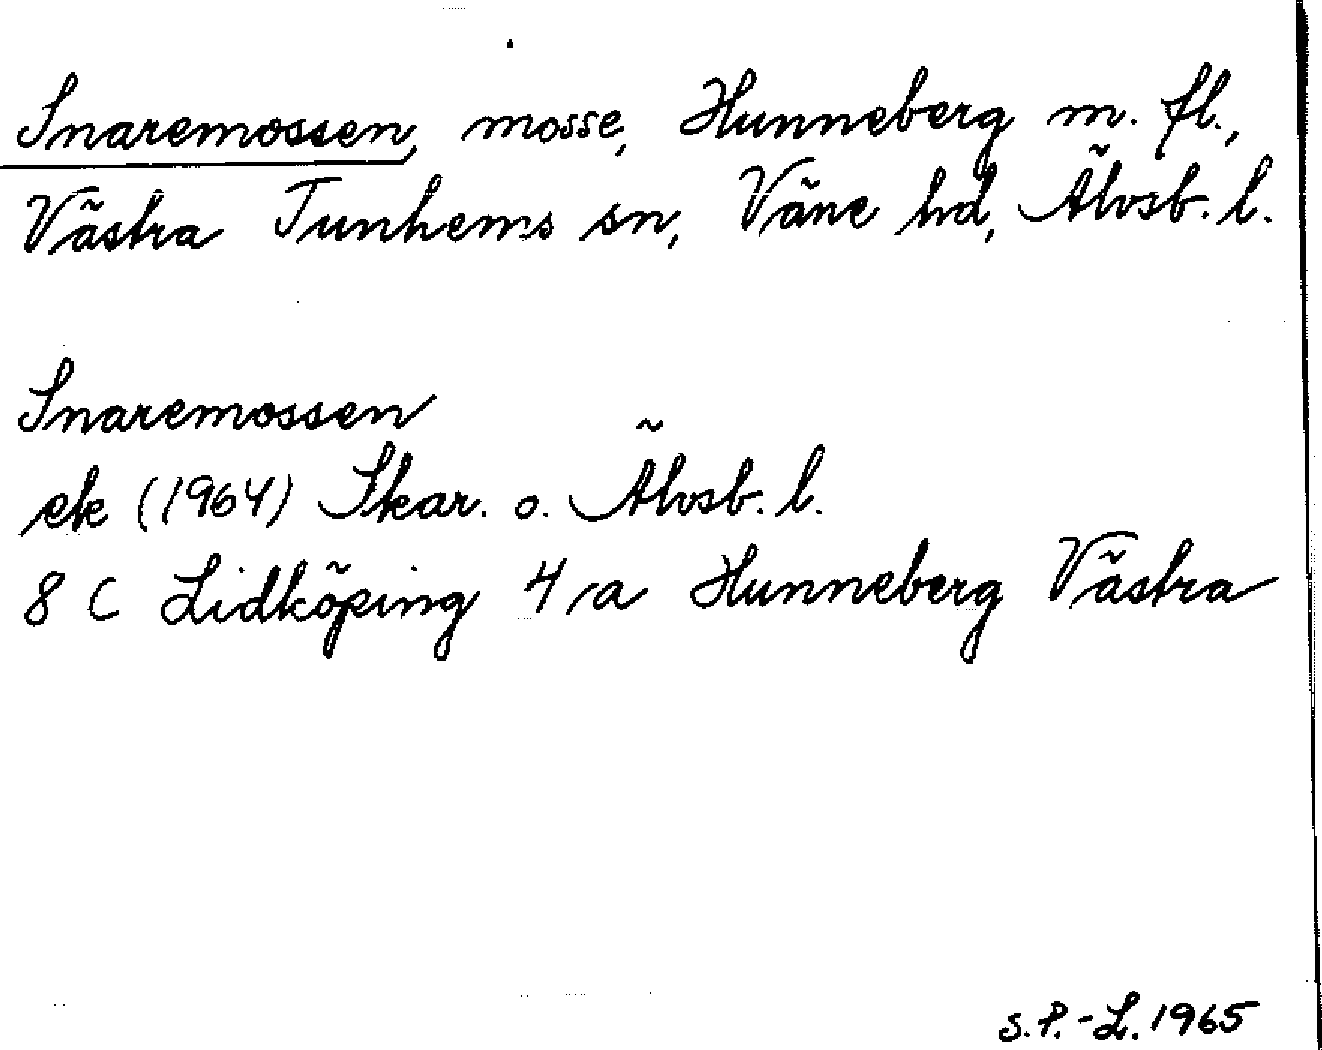 Snaremossen, mosse, Hunneberg m. fl.,
Västra Tunhems sn, Väne hd, Älvsb. l.
Snaremossen
ek (1964) Skar. o. Älvsb. l.
8 C Lidköping 4 a Hunneberg Västra
S.P.-L. 1965